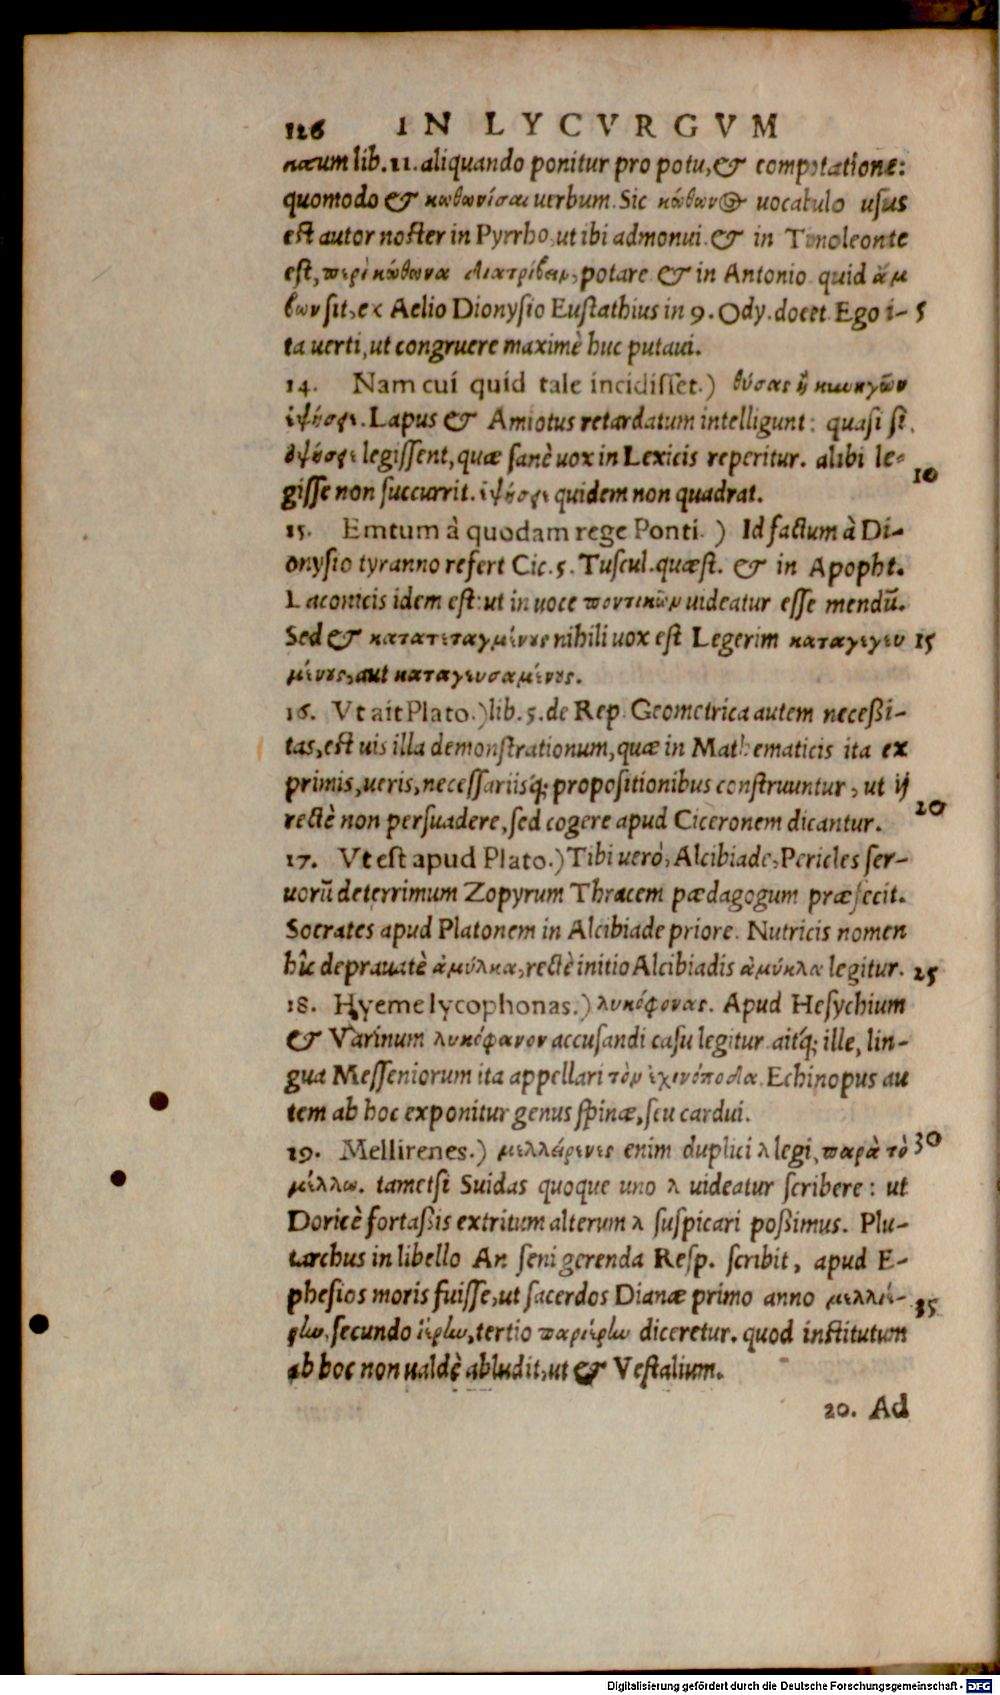 126 IN LYCVRGVM
næum lib. 11. aliquando ponitur pro potu, & compotatione:
quomodo & κωθωνίσαι uerbum. Sic κώθωνος uocabulo usus
est autor noster in Pyrrho, ut ibi admonui. & in Timoleonte
est, περὶ κώθωνα διατρίβειν, potare. & in Antonio quid ἄμ
βων sit, ex Aelio Dionysio Eustathius in 9. Ody. docet. Ego i- 5
ta uerti, ut congruere maximè huc putaui.
14. Nam cui quid tale incidisset.) θύσας ἢ κυνηγῶν
ὀψίσῃ. Lapus & Amiotus retardatum intelligunt: quasi si
legissent, quæ sanè uox in Lexicis reperitur. alibi le-
gisse non succurrit. quidem non quadrat. 10
15. Emtum à quodam rege Ponti.) Id factum à Di-
onysio tyranno refert Cic. 5. Tuscul. quæst. & in Apopht.
Laconicis idem est: ut in uoce ποντικῶν uideatur esse mendũ.
Sed & κατατεταγμένους nihili uox est Legerim καταγεγευ 15
μένους, aut καταγευσαμένους.
16. Vt ait Plato.) lib. 5. de Rep. Geometrica autem neceßi-
tas, est uis illa demonstrationum, quæ in Mathematicis ita ex
primis, ueris, necessariisq́; propositionibus construuntur, ut ij
rectè non persuadere, sed cogere apud Ciceronem dicantur. 20
17. Vt est apud Plato.) Tibi uerò, Alcibiade, Pericles ser-
uorũ deterrimum Zopyrum Thracem pædagogum præfecit.
Socrates apud Platonem in Alcibiade priore. Nutricis nomen
hîc deprauatè ἀμύλκα, rectè initio Alcibiadis ἀμύκλα legitur. 25
18. Hyeme lycophonas.) λυκόφονας. Apud Hesychium
& Varinum λυκόφανον accusandi casu legitur. aitq́; ille, lin-
gua Messeniorum ita appellari τὸν ἐχινόποδα. Echinopus au
tem ab hoc exponitur genus spinæ, seu cardui.
19. Mellirenes.) μελλείρενες enim duplici λ legi, παρὰ τὸ 30
μέλλω. tametsi Suidas quoque uno λ uideatur scribere: ut
Doricè fortaßis extritum alterum λ suspicari poßimus. Plu-
tarchus in libello An seni gerenda Resp. scribit, apud E-
phesios moris fuisse, ut sacerdos Dianæ primo anno μελλιέ- 35
ρην, secundo ἱέρην, tertio παριέρην diceretur. quod institutum
ab hoc non ualdè abludit, ut & Vestalium.
20. Ad
Digitalisierung gefördert durch die Deutsche Forschungsgemeinschaft - DFG